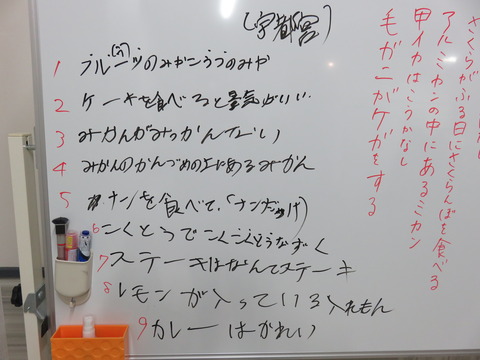 さくらがふる日にさくらんぼを食べる
アルミカンの中にあるミカン
甲イカはこうかなし
毛ガニがケガをする
(宇都宮)
1 フルーツのみやこうつのみや
2 ケーキを食べると景気がいい.
3 みかんがみっかんない
4 みかんのかんづめの上にあるみかん
5 ナンを食べて、「ナンだっけ」
6 こくとうでこくこくとうなずく
7 ステーキはなんてステーキ
8 レモンが入っている入れもん
9 カレーはかれい